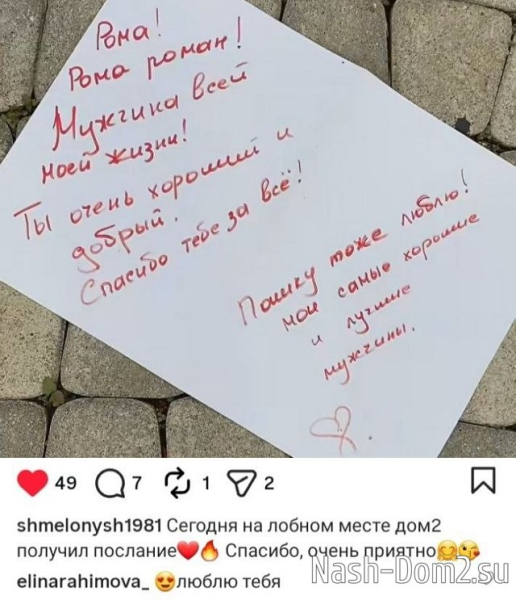 Рома!
Рома роман!
Мужчина всей
моей жизни!
Ты очень хороший и
добрый.
Спасибо тебе за всё!
Пашку тоже люблю!
мои самые хорошие
и лучшие
мужчины.
49 7 1 2
shmelonysh1981 Сегодня на лобном месте дом2
получил послание❤️🔥 Спасибо, очень приятно🤗😘
elinarahimova_ 😍люблю тебя
Nash-Dom2.su